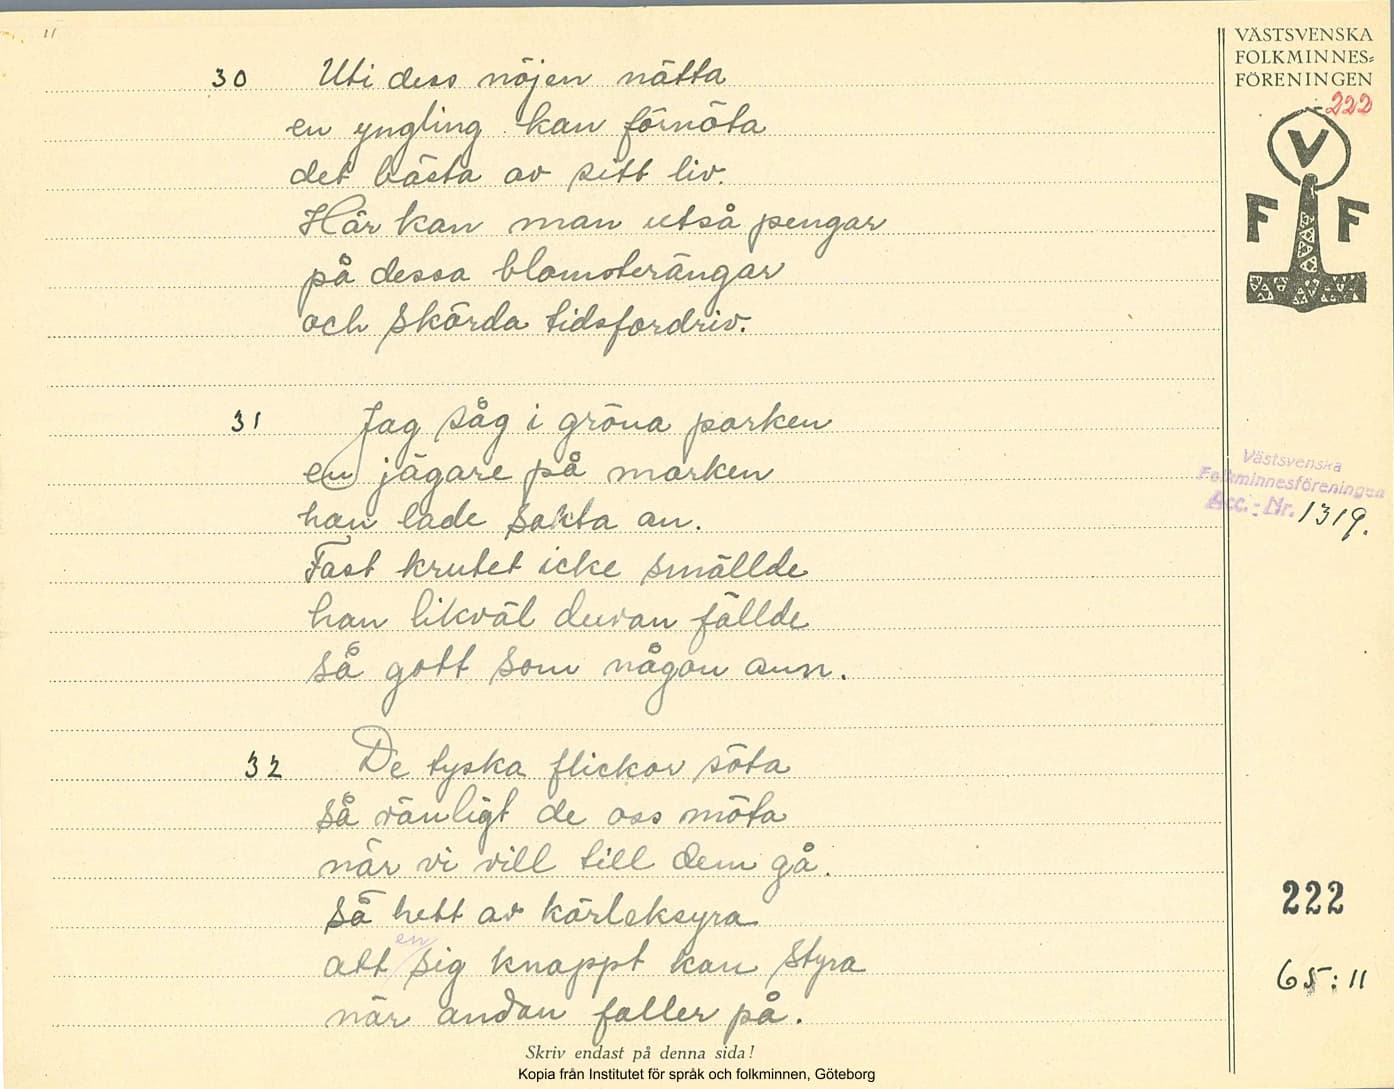 11
VÄSTSVENSKA
FOLKMINNES=
FÖRENINGEN
222
V
F F
30 Uti dess nöjen nätta
en yngling kan förnöta
det bästa av sitt liv.
Här kan man utså pengar
på dessa blomsterängar
och skörda tidsfordriv.
31 Jag såg i gröna parken
en jägare på marken
han lade sakta an.
Fast krutet icke smällde
han likväl duvan fällde
så gott som någon ann.
Västsvenska
Folkminnesföreningen
Acc.-Nr. 1319.
32 De tyska flickor söta
så vänligt de oss möta
när vi vill till dem gå.
Så hett av kärleksyra
att en sig knappt kan styra
när andan faller på.
222
65:11
Skriv endast på denna sida!
Kopia från Institutet för språk och folkminnen, Göteborg